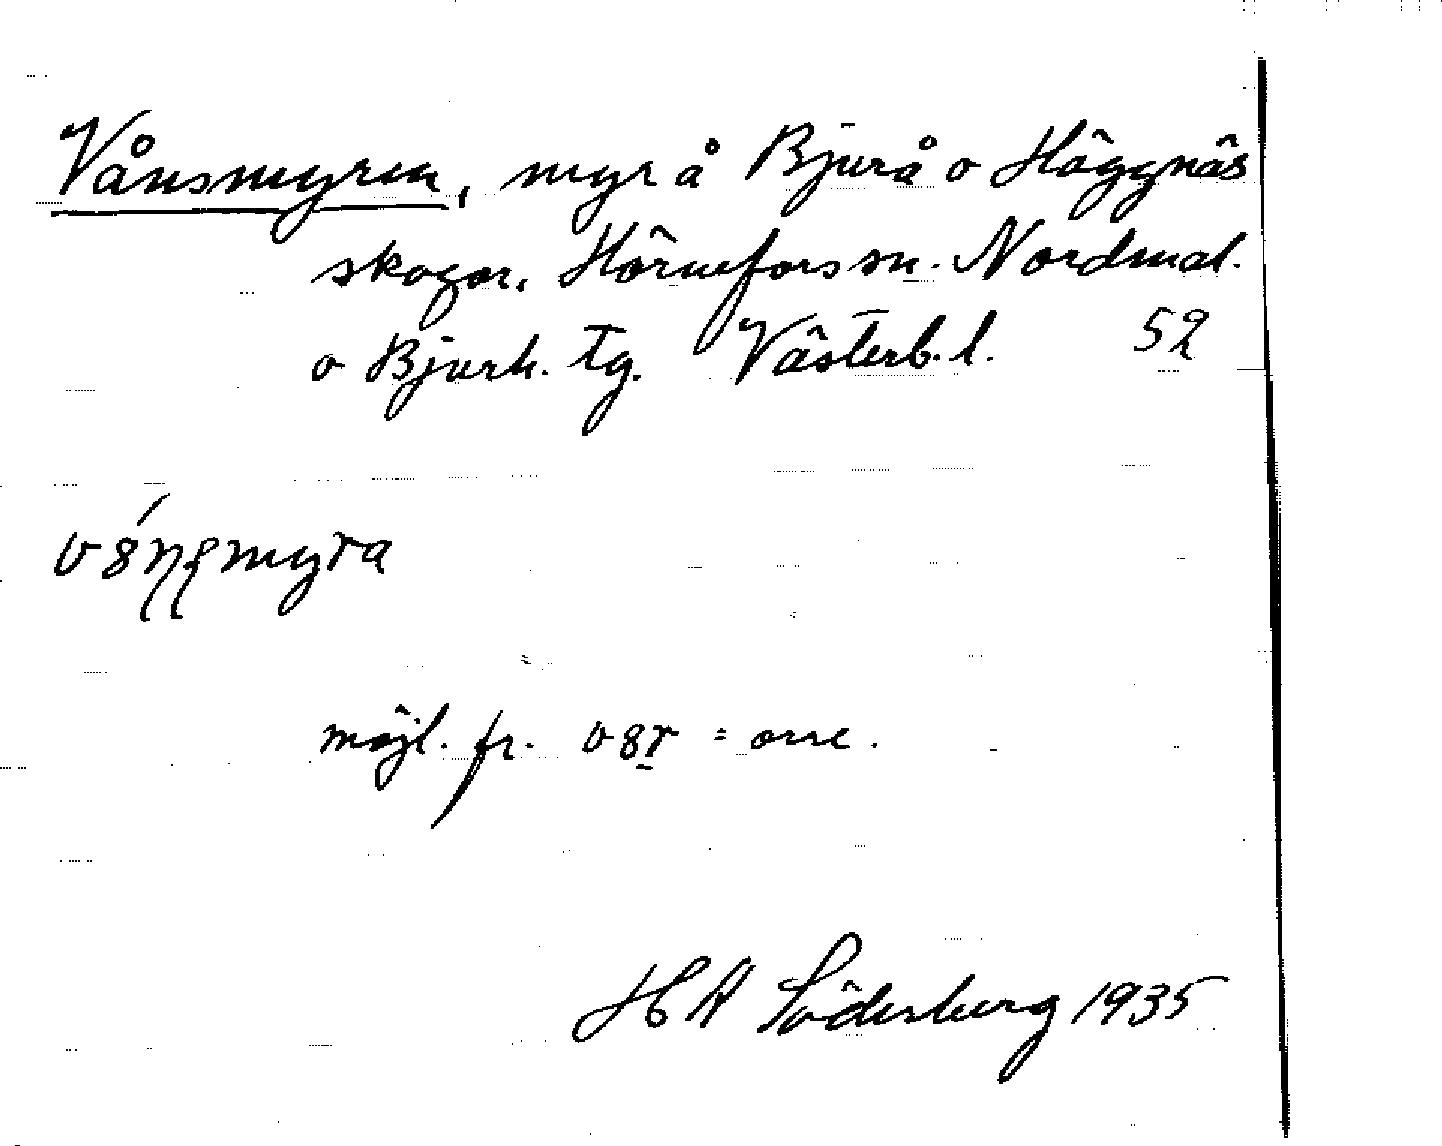 Vånsmyren, myr å Bjurå o Häggnäs
skogar, Hörnefors sn. Nordmal.
o Bjurh. tg. Västerb. l. 52
möjl. fr. v8r = orre.
HA Söderberg 1935